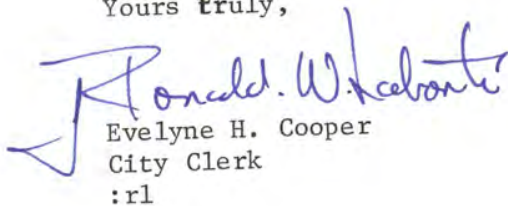 Yours truly,
Ronald. W. Labonté
Evelyne H. Cooper
City Clerk
:rl